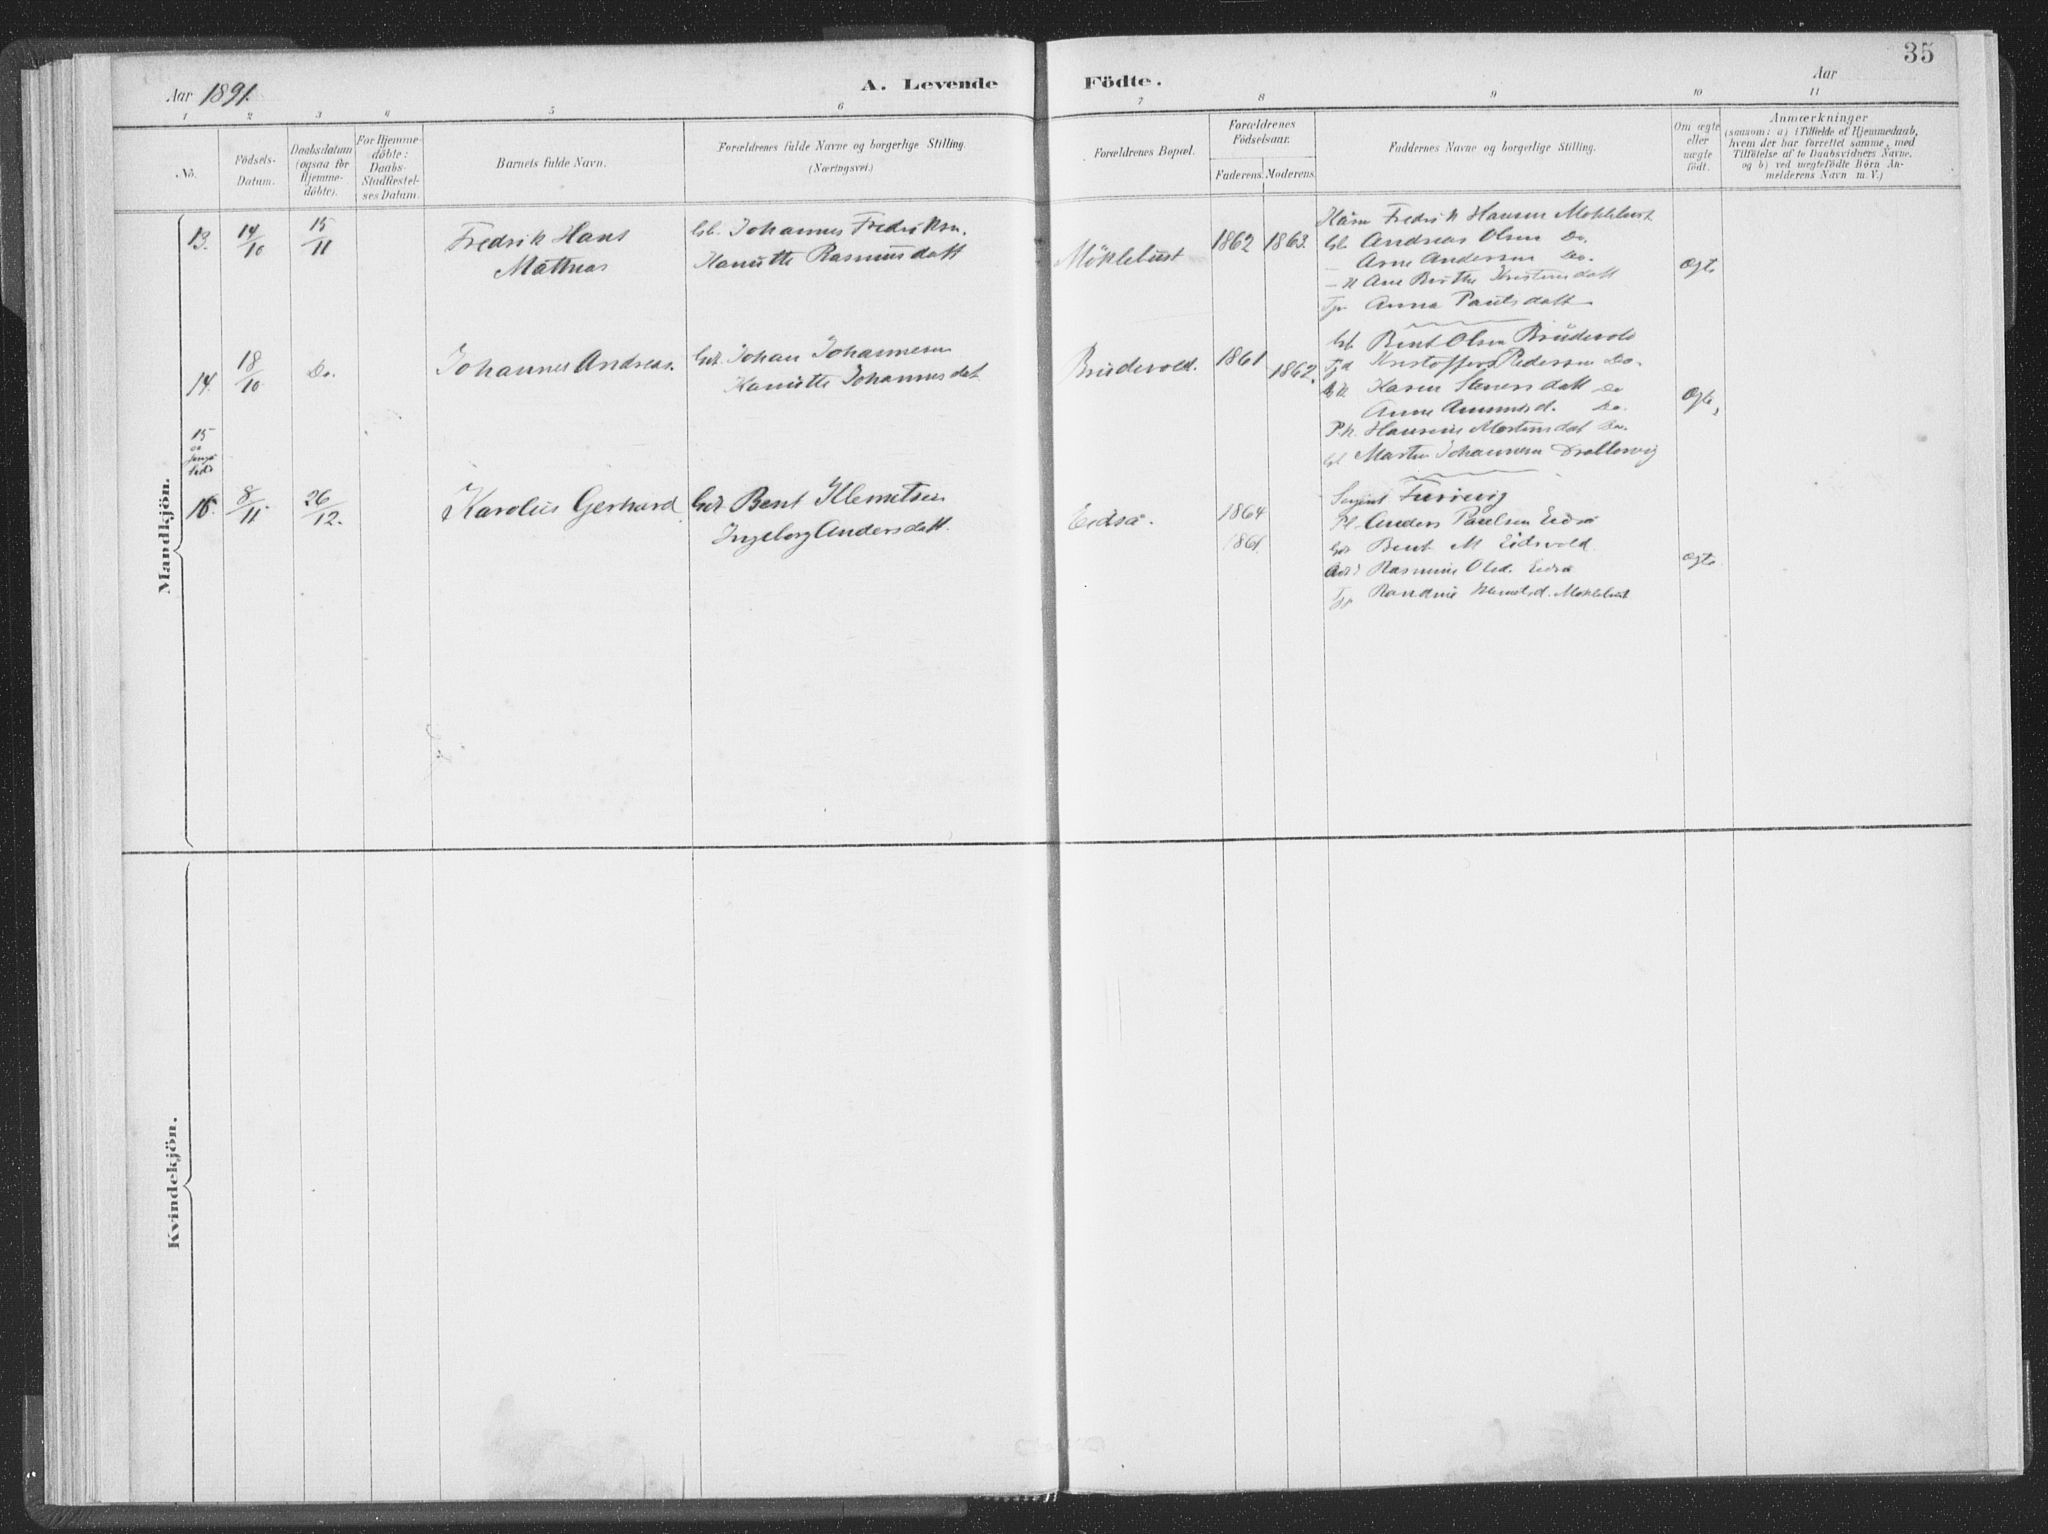 35
Aar 1891.
A. Levende Födte.
Aar
1 2 3 4 5 6 7 8 9 10 11
No.
Födsels-Datum.
Daabsdatum (ogsaa for Hjemmedöbte).
For Hjemmedöbte: Daabs-Stadfæstelses Datum.
Barnets fulde Navn.
Forældrenes fulde Navne og borgerlige Stilling. (Næringsvei.)
Forældrenes Bopæl.
Forældrenes Födselsaar.
Faderens. Moderens.
Faddernes Navne og borgerlige Stilling.
Om ægte eller uægte födt.
Anmærkninger
(saasom: a) i Tilfælde af Hjemmedaab, hvem der har forrettet samme, med Tilföielse af to Daabsvidners Navne, og b) ved uægtefödte Börn Anmelderens Navn m.V.)
Mandkjön.
13. 14/10 15/11
Fredrik Hans
Mathias
Johannes Fredriksn.
Hanutte Rasmusdatt
Möklebust
1862 1863.
Fredrik Hansen Moklebust
Andreas Olsen Do.
Arne Andersen Do.
Ane Birthe Kristensdatt
Anna Paulsdatt
Ægte
14. 18/10 Do.
Johannes Andreas.
Johan Johannesen
Hanutte Johannesdat
Brudevold.
1861 1862.
Bent Olsen Brudevold
Kristoffer Pedersen Do.
Karen Steners datt Do
Anne Do.
Hansine Mortensdat Do.
Martin Johannesen
Ægte
15
16. 8/11 26/12.
Karolus Gerhard
Bent Klemetsen
Ingeborg Andersdatt.
Eidså.
1864
1861
Anders Paulsen Eidså
Bent M Eidsvold.
Rasmine Olsd. Eidså
Randine Klemetsd. Moklebust
Ægte
Kvindekjön.